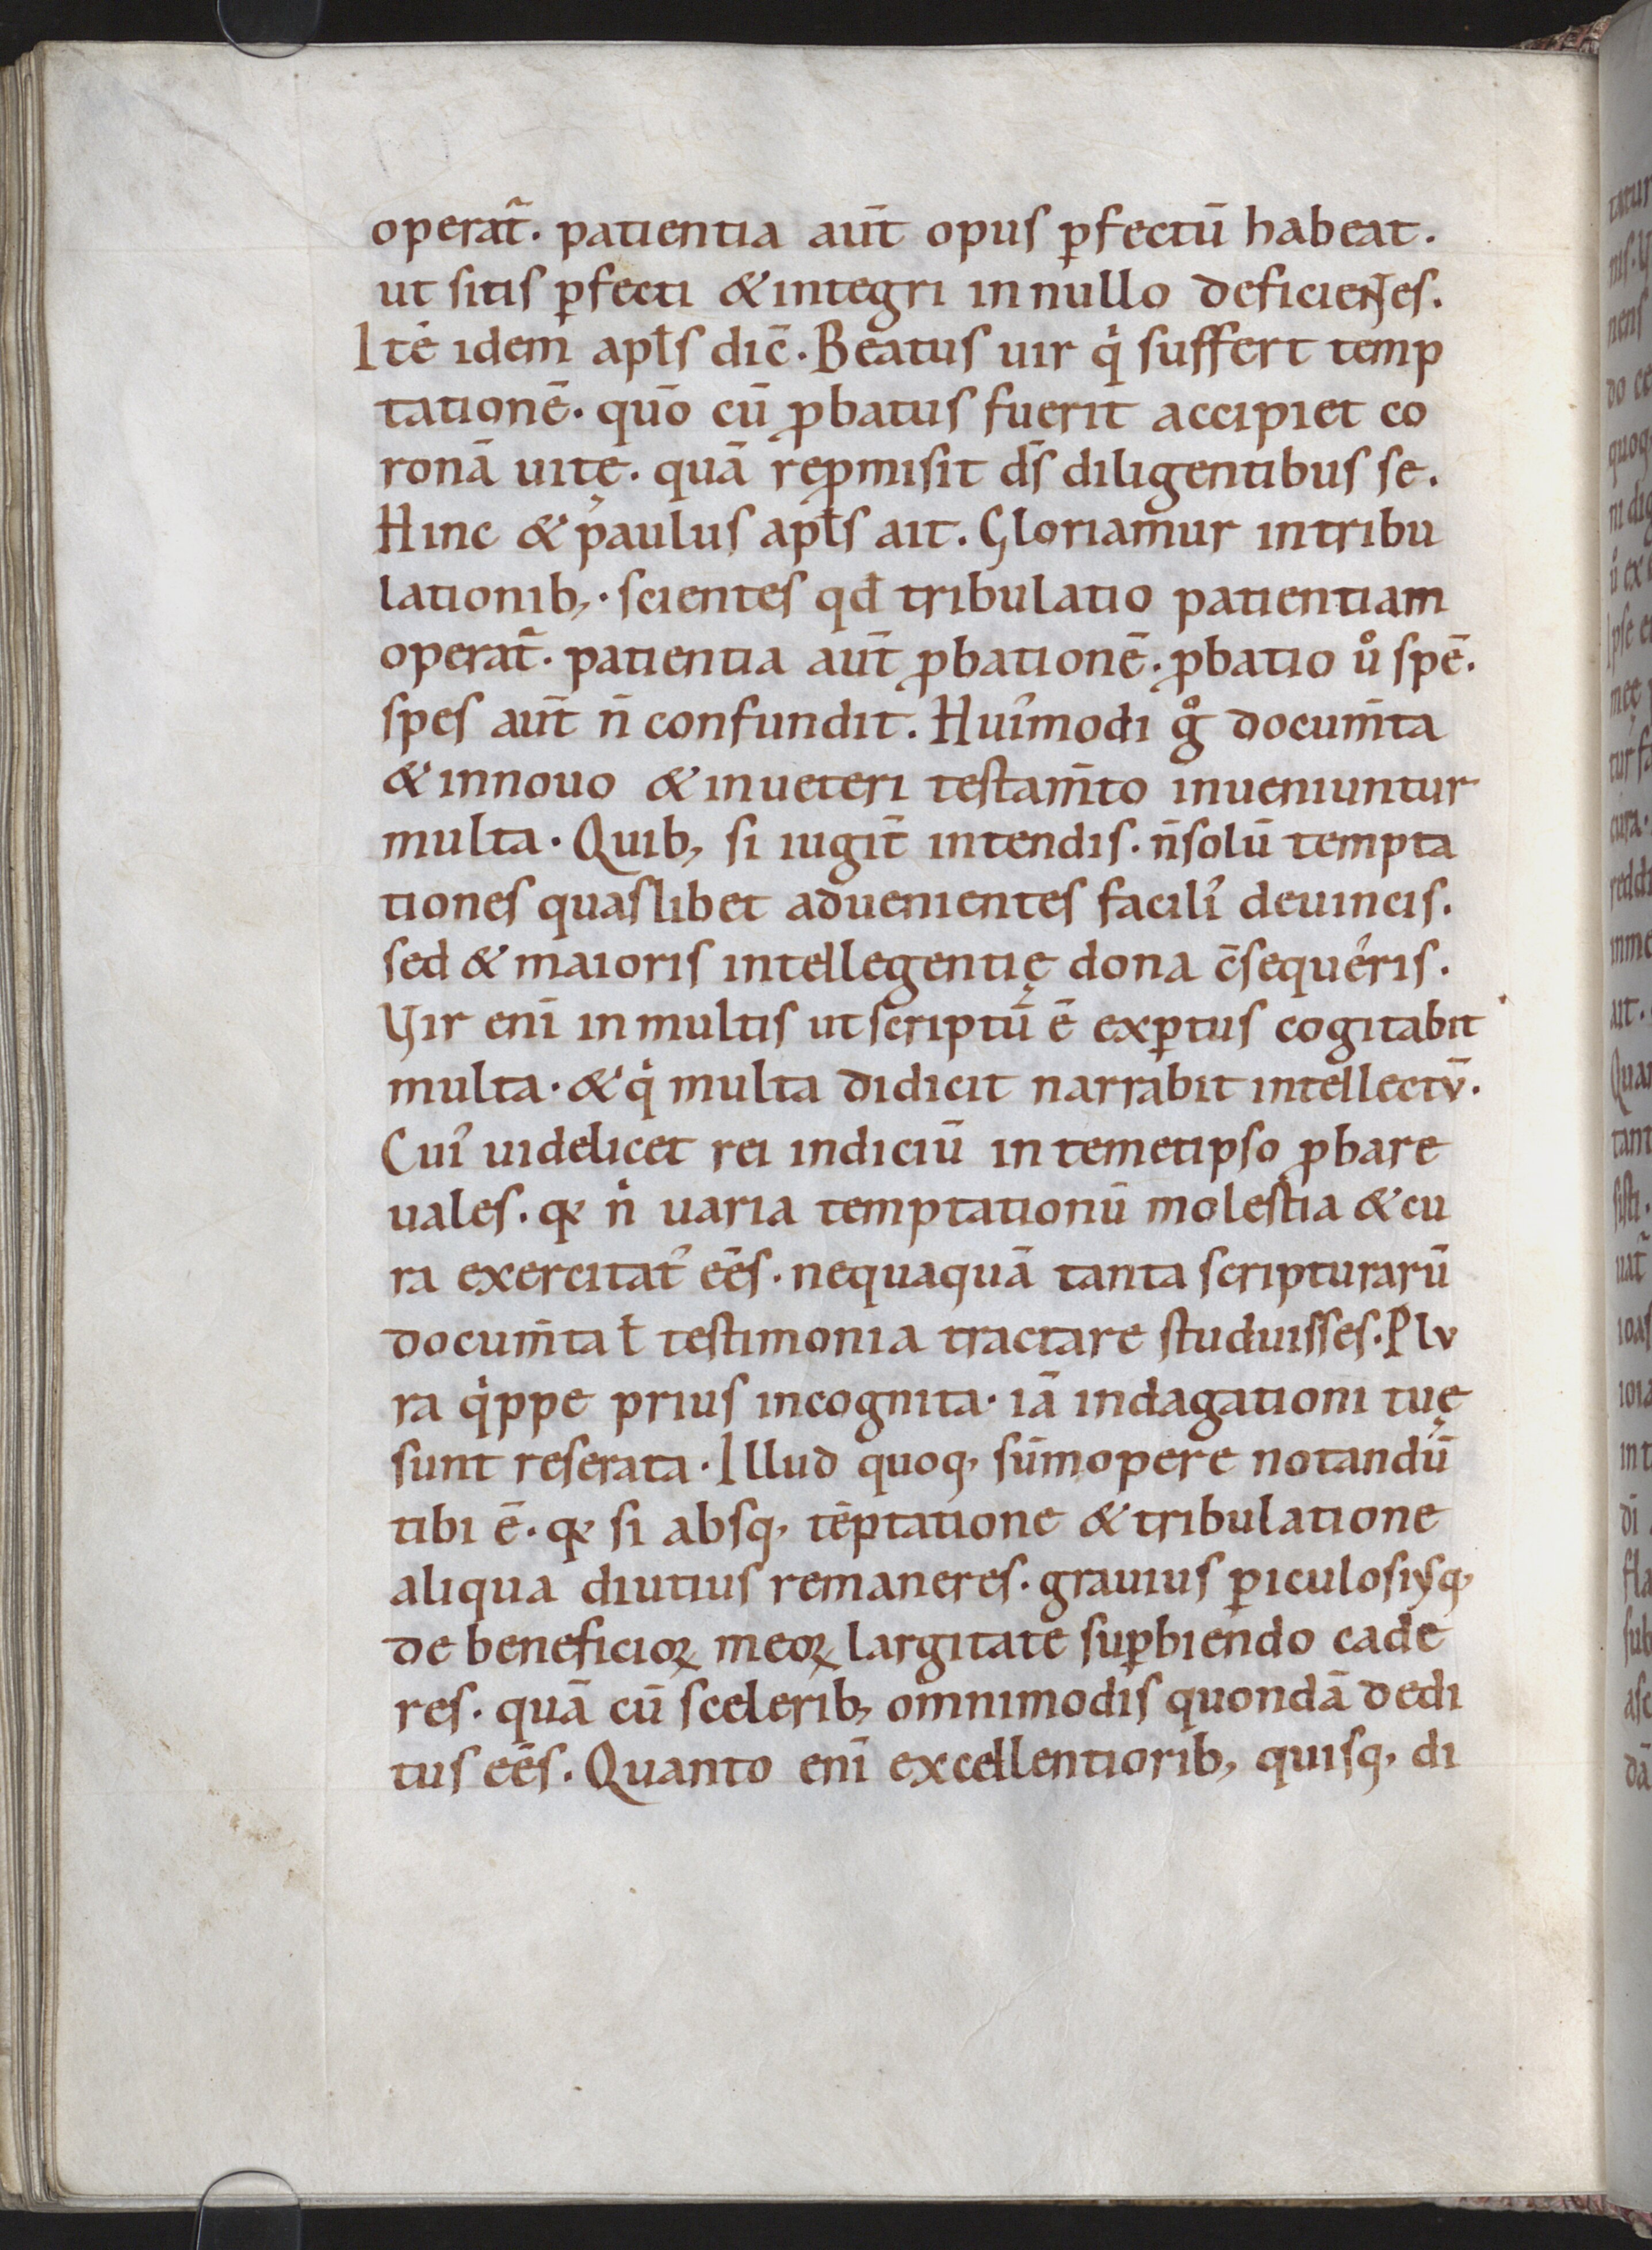 operat᷑. patientia aut̄ opus ꝑfectū habeat.
ut sitis ꝑfecti & integri in nullo deficientes.
Itē idem apl̄s dic̄. Beatus uir qͥ suffert temp
tationē. quō cū ꝓbatus fuerit accipiet co
ronā uitę. quā reꝓmisit dꝰs diligentibus se.
Hinc & paulus apl̄s ait. Gloriamur in tribu
lationib;. scientes qđ tribulatio patientiam
operat᷑. patientia aut̄ ꝓbationē. ꝓbatio uͦ spē.
spes aut̄ n̄ confundit. Hui᷑modi gͦ docum̄ta
& in nouo & in ueteri testam̄to inueniuntur
multa. Quib; si iugit̄ intendis. n̄ solū tempta
tiones quaslibet aduenientes facili᷑ deuincis.
sed & maioris intellegentię dona c̄sequeris.
Vir enī in multis ut scriptū ē exꝑtus cogitabit
multa. & qͥ multa didicit narrabit intellectū.
Cui᷑ uidelicet rei indiciū in temetipso ꝓbare
uales. qꝛ nͥ uaria temptationū molestia & cu
ra exercitat᷑ eēs. nequaquā tanta scripturarū
docum̄ta ł testimonia tractare studuisses. Plu
ra qͥppe prius incognita. iā indagationi tuę
sunt reserata. Illud quoq; sūmopere notandū
tibi ē. qꝛ si absq; tēptatione & tribulatione
aliqua diutius remaneres. grauius ꝑiculosiusq;
de beneficioꝝ meoꝝ largitate suꝑbiendo cade
res. quā cū scelerib; omnimodis quondā dedi
tus eēs. Quanto enī excellentiorib; quisq; di